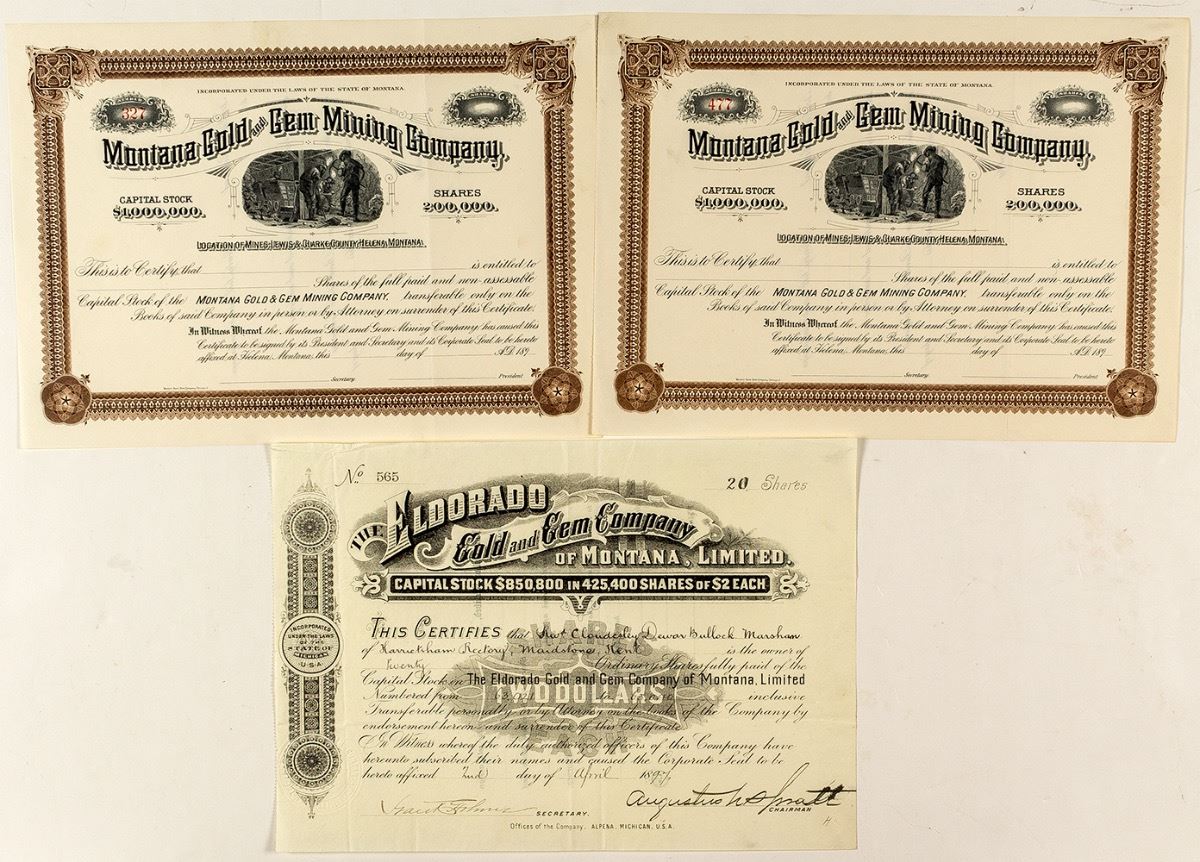 INCORPORATED UNDER THE LAWS OF THE STATE OF MONTANA.
NUMBER
327
Montana Gold and Gem Mining Company,
CAPITAL STOCK
$1,000,000.
SHARES
200,000.
LOCATION OF MINES: LEWIS & CLARKE COUNTY, HELENA, MONTANA.
This is to Certify, that is entitled to
Shares of the full paid and non-assessable
Capital Stock of the MONTANA GOLD & GEM MINING COMPANY. transferable only on the
Books of said Company in person or by Attorney on surrender of this Certificate.
In Witness Whereof, the Montana Gold and Gem Mining Company has caused this
Certificate to be signed by its President and Secretary and its Corporate Seal to be hereto
affixed at Helena, Montana, this day of A.D. 189
Secretary. President.
INCORPORATED UNDER THE LAWS OF THE STATE OF MONTANA.
NUMBER
477
Montana Gold and Gem Mining Company,
CAPITAL STOCK
$1,000,000.
SHARES
200,000.
LOCATION OF MINES: LEWIS & CLARKE COUNTY, HELENA, MONTANA.
This is to Certify, that is entitled to
Shares of the full paid and non-assessable
Capital Stock of the MONTANA GOLD & GEM MINING COMPANY. transferable only on the
Books of said Company in person or by Attorney on surrender of this Certificate.
In Witness Whereof, the Montana Gold and Gem Mining Company has caused this
Certificate to be signed by its President and Secretary and its Corporate Seal to be hereto
affixed at Helena, Montana, this day of A.D. 189
Secretary. President.
No. 565
20 Shares
THE ELDORADO
Gold and Gem Company
OF MONTANA, LIMITED.
CAPITAL STOCK $850,800 IN 425,400 SHARES OF $2 EACH
INCORPORATED
UNDER THE LAWS
OF THE
STATE OF
MICHIGAN
U.S.A.
SHARES
TWO DOLLARS
EACH
THIS CERTIFIES that Cloudesley Dewar Bullock Marsham
of Harrietsham Rectory, Maidstone, Kent is the owner of
Twenty Ordinary Shares fully paid of the
Capital Stock on The Eldorado Gold and Gem Company of Montana, Limited
Numbered from to inclusive
Transferable personally or by Attorney on the books of the Company by
endorsement hereon and surrender of this Certificate
In Witness whereof the duly authorized officers of this Company have
hereunto subscribed their names and caused the Corporate Seal to be
hereto affixed 2nd day of April 189
Augustus W. Spratt
SECRETARY. CHAIRMAN
Offices of the Company, ALPENA, MICHIGAN, U.S.A.